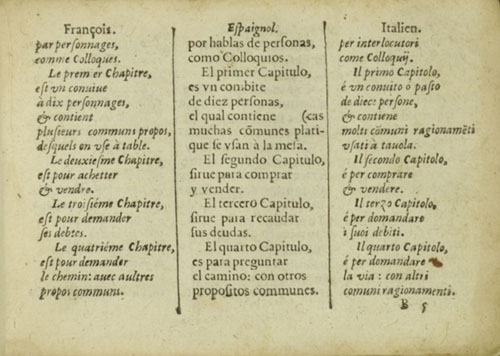 François.
par personnages,
comme Colloques.
Le prem er Chapitre,
est vn conuiue
à dix personnages,
& contient
plusieurs communs propos,
desquels on vse à table.
Le deuxiesme Chapitre,
est pour achetter
& vendre.
Le troisiéme Chapitre,
est pour demander
ses debtes.
Le quatriéme Chapitre,
est pour demander
le chemin: auec aultres
propos communs.
Espaignol.
por hablas de personas,
como Colloquios.
El primer Capitulo,
es vn combite
de diez personas,
el qual contiene (cas
muchas cõmunes plati-
que se vsan à la mesa.
El segundo Capitulo,
sirue para comprar
y vender.
El tercero Capitulo,
sirue para recaudar
sus deudas.
El quarto Capitulo,
es para preguntar
el camino: con otros
propositos communes.
Italien.
per interlocutori
come Colloquij.
Il primo Capitolo,
é vn conuito o pasto
de diece persone,
& contiene
molti cõmuni ragionamẽti
vsati à tauola.
Il secondo Capitolo,
é per comprare
& vendere.
Il terzo Capitolo,
é per domandare
i suoi debiti.
Il quarto Capitolo,
é per domandare
la via : con altri
comuni ragionamenti.
B 5